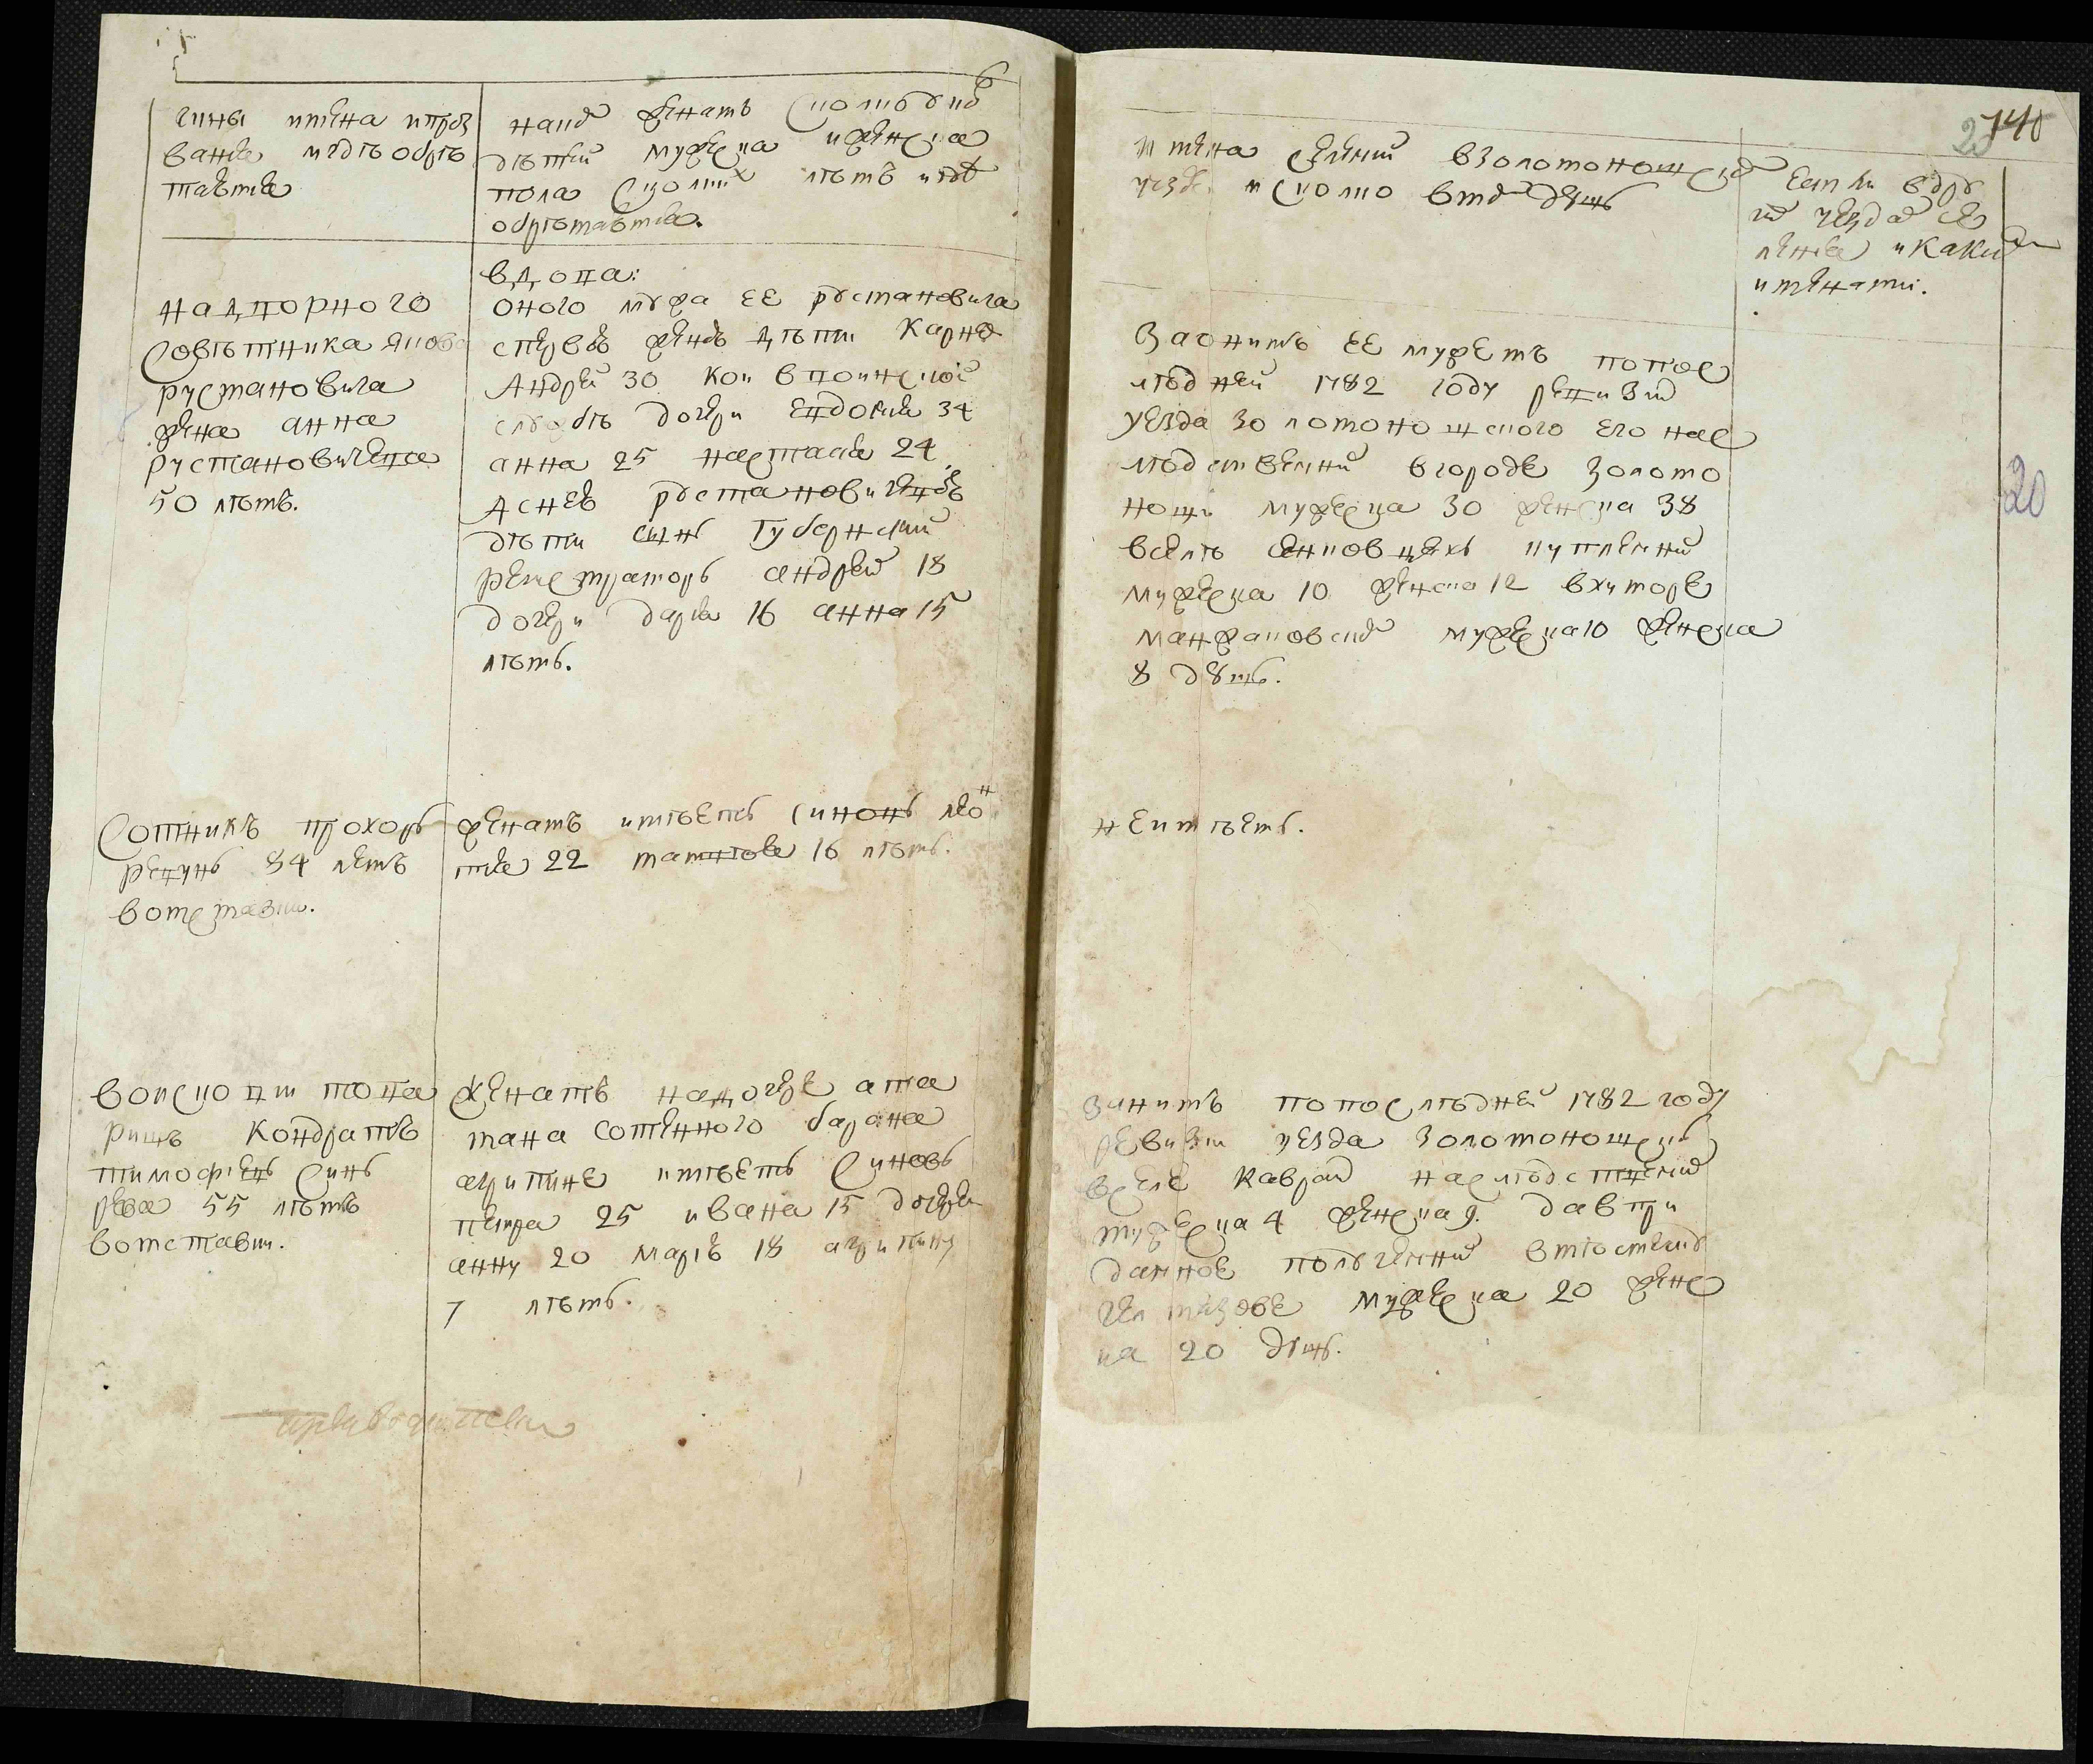 чины имена и проз
вание и где обре
таются
на ком женатъ сколько
детей мужеска и женска
пола сколких летъ и где
обретаются.
имена селений в золотоношском
уезде. и сколко в них душъ
Если в дру
гих уездах се
ления и каким
именами.
20
140
20
надворного
Советника якова
рустановича
жена анна
рустановичева
50 летъ.
вдова:
оного мужа ее рустановича
с первою женою дети Карней
Андрей 30 кои в воинской
службе дочери евдокия 34
анна 25 настасия 24
А с нею рустановичевою
дети синъ губернский
регистраторъ андрей 18
дочери дария 16 анна 15
летъ.
За онимъ ее мужемъ по пос
ледней 1782 году ревизии
уезда золотоношского его нас
ледственних в городе золото
ноши мужеска 30 женска 38
в селе сенковцяхъ купленних
мужеска 10 женска 12 в хуторе
манжаловском мужеска 10 женска
8 душъ.
Сотникъ прохоръ
ревунъ 84 летъ
в отставки.
женатъ имеетъ синовъ леон
тия 22 матвея 16 летъ.
не имеетъ.
войсковий това
рищъ Кондратъ
тимофеевъ синъ
рева 55 летъ
в отставки.
Женатъ на дочере ата
мана сотенного барана
агрипине имеетъ Синовъ
петра 25 ивана 15 дочерей
анну 20 марю 18 агрипину
7 летъ.
За нимъ по последней 1782 году
ревизии уезда золотоношского
в селе Каврай наследственних
мужеска 4 женска 9. да в при
данное полученних в местечке
мужеска 20 женс
ка 20 душъ.